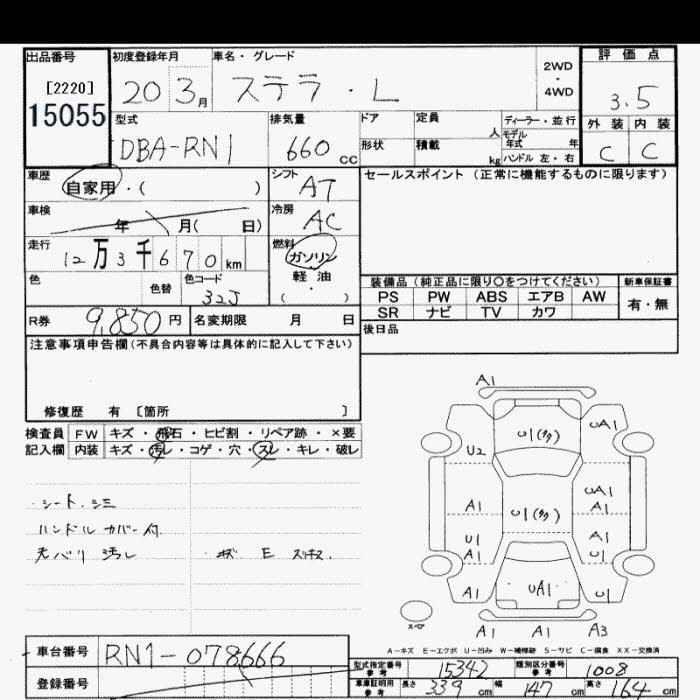 出品番号 初度登録年月 車名・グレード 評価点
[2220] 20 3月 ステラ・L 2WD・4WD 3.5
15055 型式 排気量 ドア 定員 人 ディーラー・並行 外装 内装
DBA-RN1 660cc 形状 積載 kg モデル年式 年 C C
ハンドル 左・右
車歴 自家用・( ) シフト AT セールスポイント(正常に機能するものに限ります)
車検 年 月( 日) 冷房 AC
走行 12万3千670km 燃料 ガソリン
軽・油
・
( )
色 色替 色コード 32J
装備品(純正品に限り○をつけてください) 新車保証書
PS PW ABS エアB AW 有・無
SR ナビ TV カワ
R券 9,850円 名変期限 月 日 後日品
注意事項申告欄(不具合内容等は具体的に記入して下さい)
修復歴 有 [箇所 ]
検査員 FW キズ・飛石・ヒビ割・リペア跡・×要
記入欄 内装 キズ・汚レ・コゲ・穴・スレ・キレ・破レ
・シート、シミ
ハンドル カバー付
天バリ 汚し ・
A1
U1(多) UA1
U2
A1 U1(多) UA1
A1
U1
A1 U1
A1 UA1 U1
スペア
A1 A1 A3
A-キズ E-エクボ U-凹み W-補修跡 S-サビ C-腐食 XX-交換済
車台番号 RN1-078666
登録番号
型式指定番号 参考 15342 類別区分番号 参考 1008
車庫証明用 参考 長さ 339cm 幅 147cm 高さ 164cm